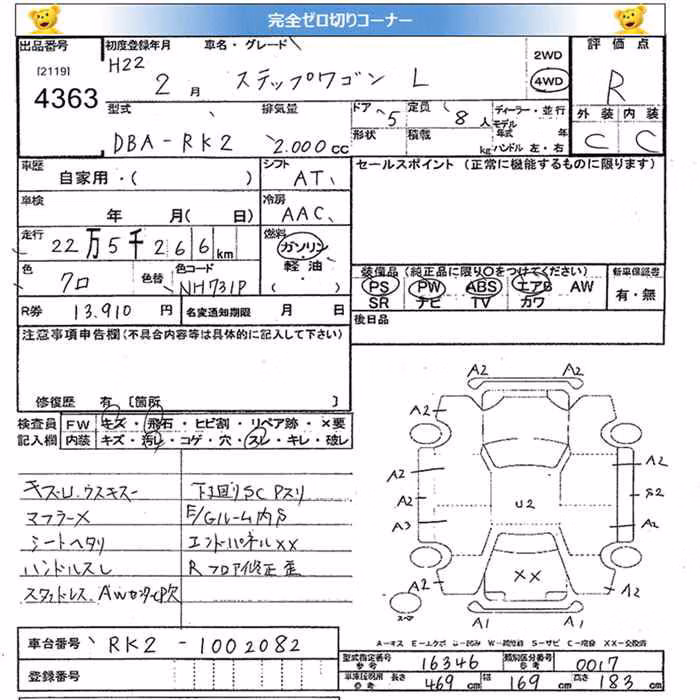 完全ゼロ切りコーナー
出品番号 [2119] 4363
初度登録年月 H22 2 月
車名・グレード ステップワゴン L
2WD 4WD
評価点 R
型式 DBA-RK2
排気量 2.000 cc
ドア 5 形状
定員 8 人 積載 kg
ディーラー・並行
モデル年式 年
ハンドル 左・右
外装 内装
C C
車歴 自家用・( )
シフト AT
セールスポイント (正常に機能するものに限ります)
車検 年 月( 日)
冷房 AAC
走行 22万5千266 km
燃料 ガソリン・軽油・( )
色 クロ 色替 色コード NH731P
装備品(純正品に限り○をつけてください)
PS PW ABS エアB AW
SR ナビ TV カワ
新車保証書 有・無
R券 13.910 円 名変通知期限 月 日
後日品
注意事項申告欄(不具合内容等は具体的に記入して下さい)
修復歴 有 〔箇所 〕
検査員記入欄
FW キズ・飛石・ヒビ割・リペア跡・×要
内装 キズ・汚レ・コゲ・穴・スレ・キレ・破レ
キズU.ウスキズー
マフラーX
シートヘタリ
ハンドルスレ
スタッドレス.AWセンターCP欠
下回りSC Pスリ
E/Gルーム内S
エンドパネルXX
Rフロア修正歪
A2 A2
A2 A2
A2 A2
A2 U2 S2
A3 A2
XX
A2 A2
スペア
A1 A1
A-キズ E-エクボ U-凹み W-補修跡 S-サビ C-腐食 XX-交換済
車台番号 RK2-1002082
登録番号
型式指定番号参考 16346
類別区分番号参考 0017
車庫証明用参考 長さ 469 cm 幅 169 cm 高さ 183 cm